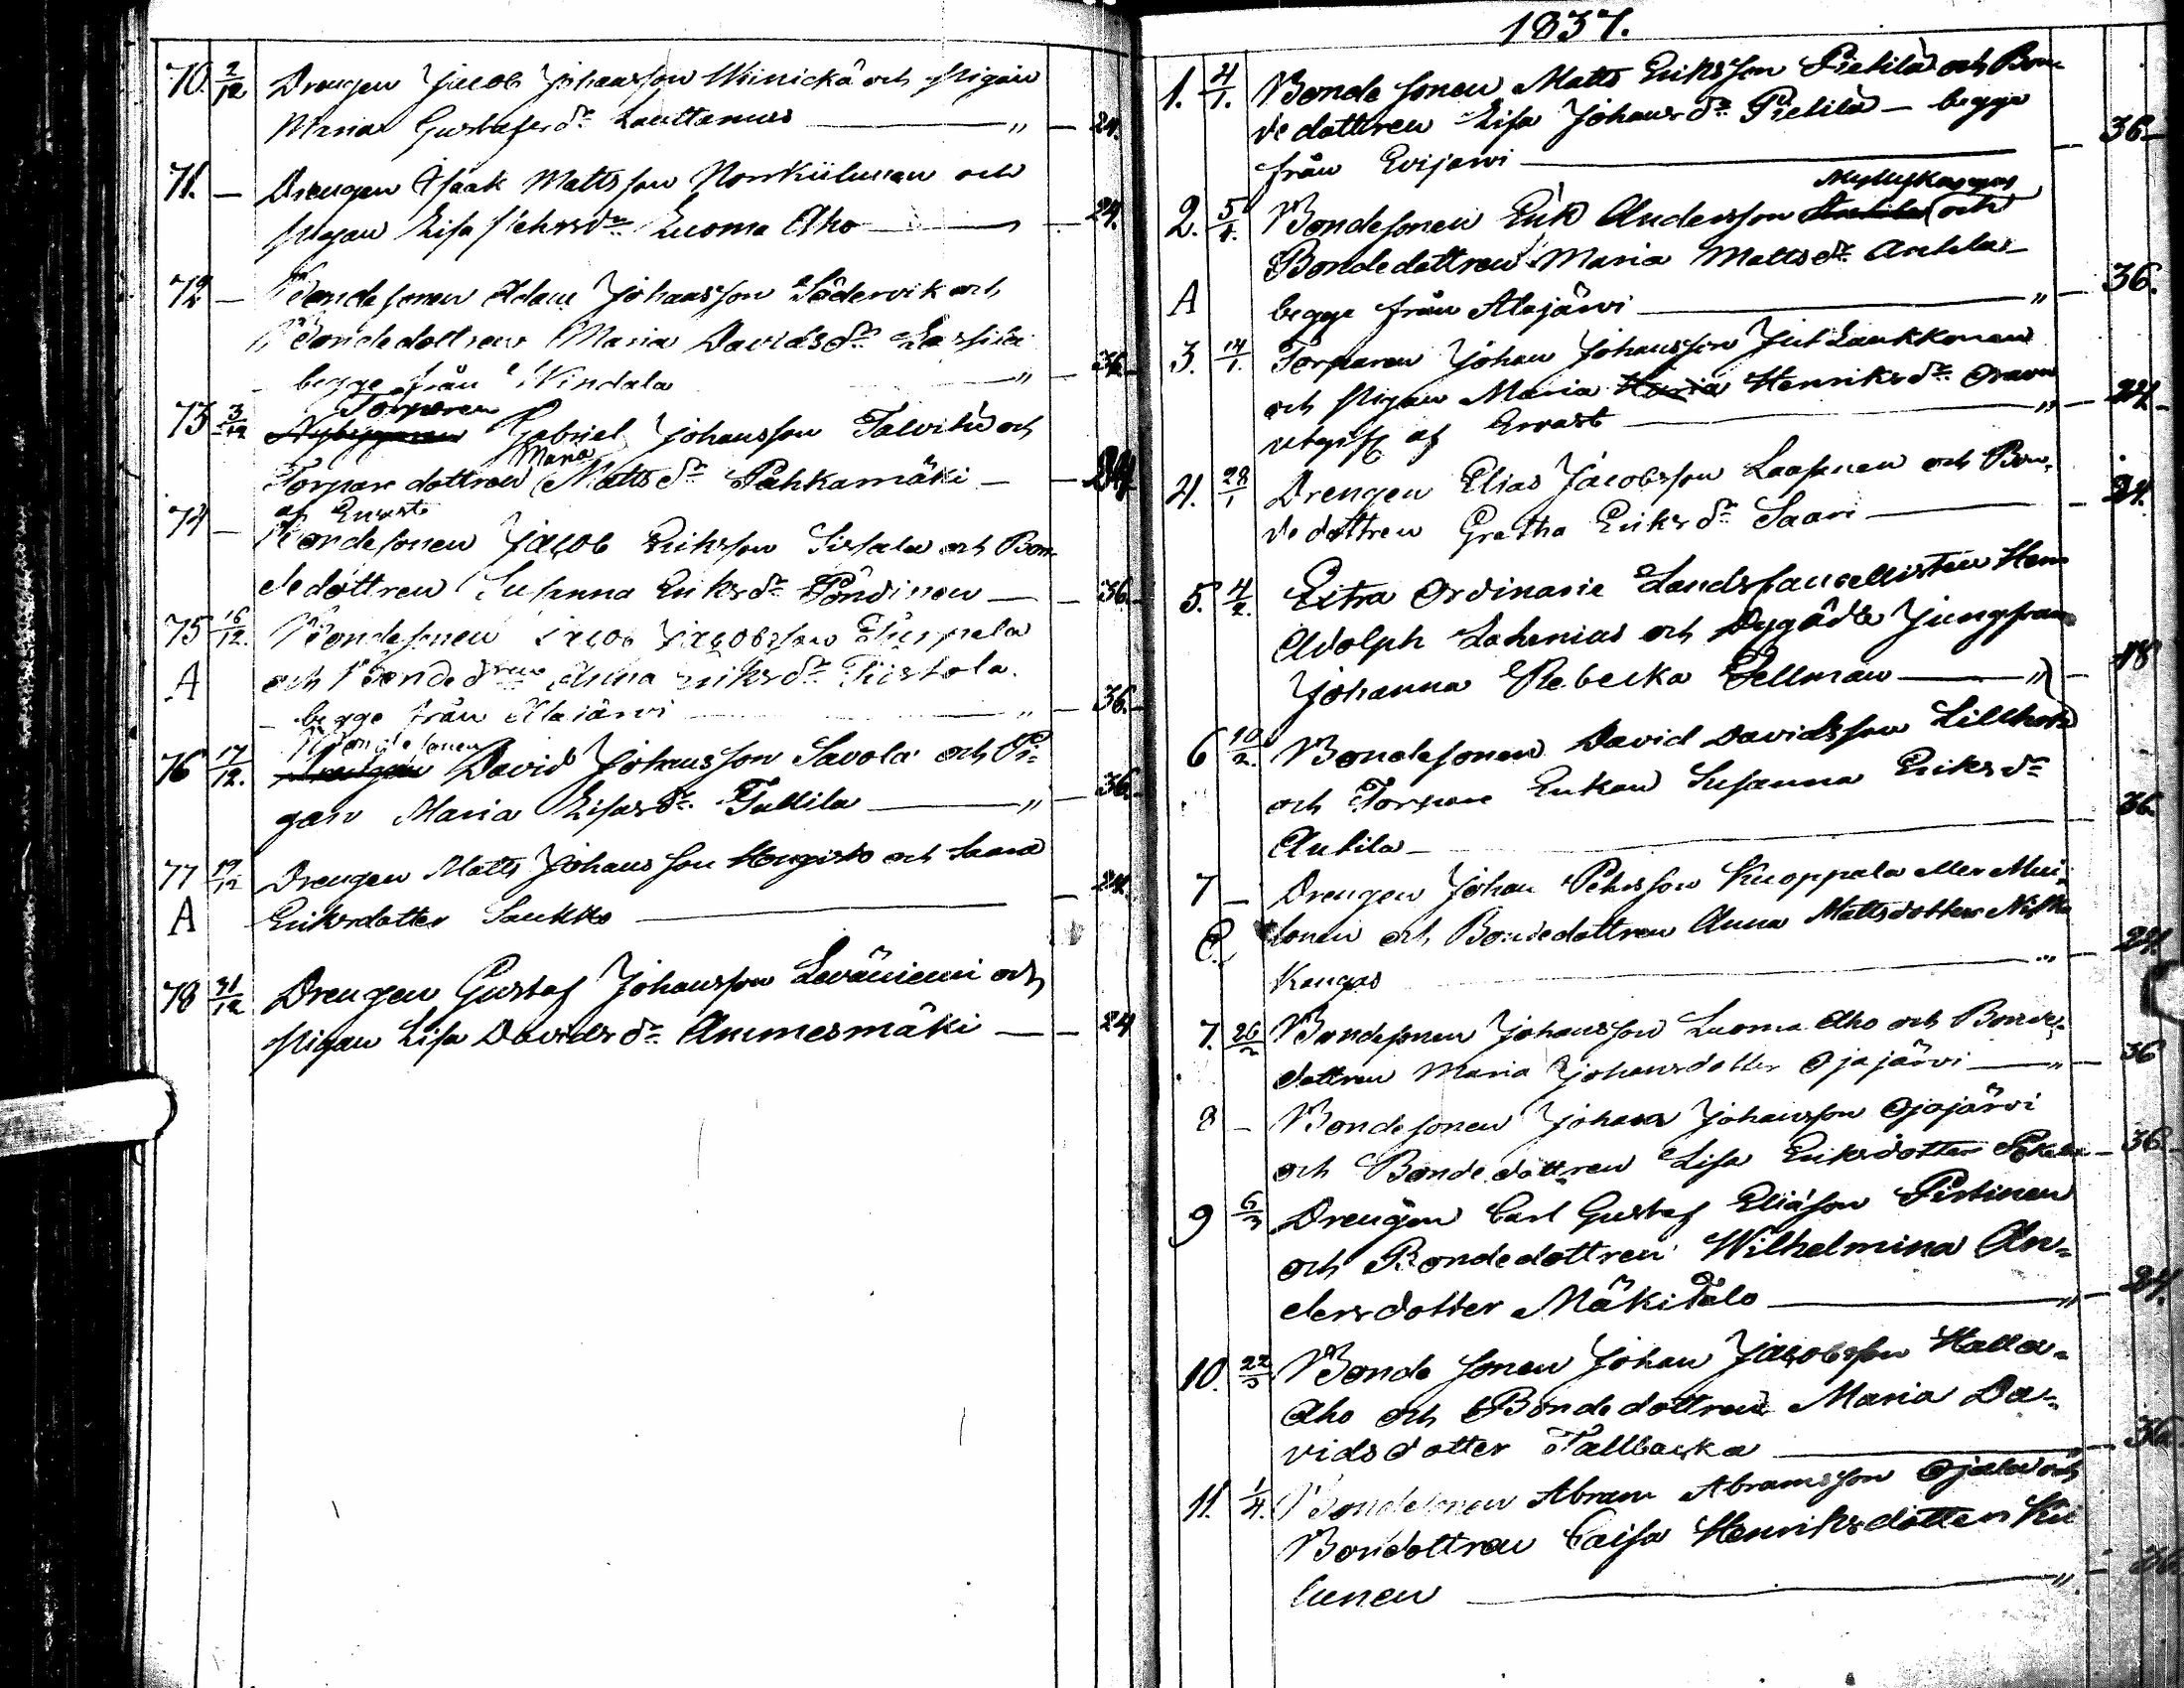 70. 2/12 Drengen Jacob Johansson Winickä och Pigan
Maria Gustafsdr Lauttamus — " — 24.
71. — Drengen Isaak Mattsson Norrkiilunen och
Pigan Lisa Pehrsdr Luoma Aho — 24.
72 — Bondesonen Adam Johansson Södervik och
Bondedottren Maria Davidsdr Lassila
begge från Windala " — 36.
Torparen
73 3/12 Nybyggaren Gabriel Johansson Talvitie och
Maria
Torpare dottren Mattsdr Pahkamäki — — 24
af Ervasti
74 — Bondesonen Jacob Eriksson Sissala och Bon
dedottren Susanna Eriksdr Pöndinen — — 36.
75 16/12. Bondesonen Jacob Jacobsson
A och Bondedren Anna Eriksdr Tiistola.
begge från Alajärvi " — 36.
Bondesonen
76 17/12. Drengen David Johansson Savola och Pi-
gan Maria Lisasdr Tallila — " — 36.
77 19/12 Drengen Matts Johansson Hongisto och Saara
A Eriksdotter Saukko — 24.
78 31/12 Drengen Gustaf Johansson Leväniemi och
Pigan Lisa Davidsdr Ammesmäki — — 24
1837.
1. 4/1. Bonde sonen Matts Eriksson Pietilä och Bon
dedottren Lisa Johansdr Pietilä — begge
från Evijärvi — 36
Myllykangas
2. 5/1. Bondesonen Erik Andersson Anttila och
Bondedottren Maria Mattsdr Anttila
A begge från Alajärvi — " — 36.
3. 14/1. Torparen Johan Johansson Laukkonen
och Pigan Maria Maria Henriksdr Oravn
af Ervast — " — 24
4. 28/1 Drengen Elias Jacobsson Laasanen och Bon-
dedottren Gretha Eriksdr Saari — 24.
5. 4/2. Extra Ordinarie Landskancellisten Herr
Adolph Lahenius och Dygädla Jungfrun
Johanna Rebecka Fellman — " — 48
6 10/2. Bondesonen David Davidsson Lillkod
och Torpare Enkan Susanna Eriksdr
Antila — 36
7 — Drengen Johan Pehrsson Knoppala eller Mui-
lonen och Bondedottren Anna Mattsdotter
Kangas " — 24.
7. 26/2 Bondesonen Johansson Luoma Aho och Bonde-
dottren Maria Johansdotter Ojajärvi — " — 36
8 — Bondesonen Johan Johansson Ojajärvi
och Bondedottren Lisa Eriksdotter — 36
9 6/3 Drengen Carl Gustaf Eliasson Pistinen
och Bondedottren Wilhelmina An-
dersdotter Mäkitalo — " — 24.
10. 22/3 Bonde sonen Johan Jacobsson Halla-
Aho och Bondedottren Maria Da-
vidsdotter Tallbacka — 36
11. 1/4. Bondesonen Abram Abramsson Ojala och
Bondottren Caisa Henriksdotter Kii
lunen — " — 36